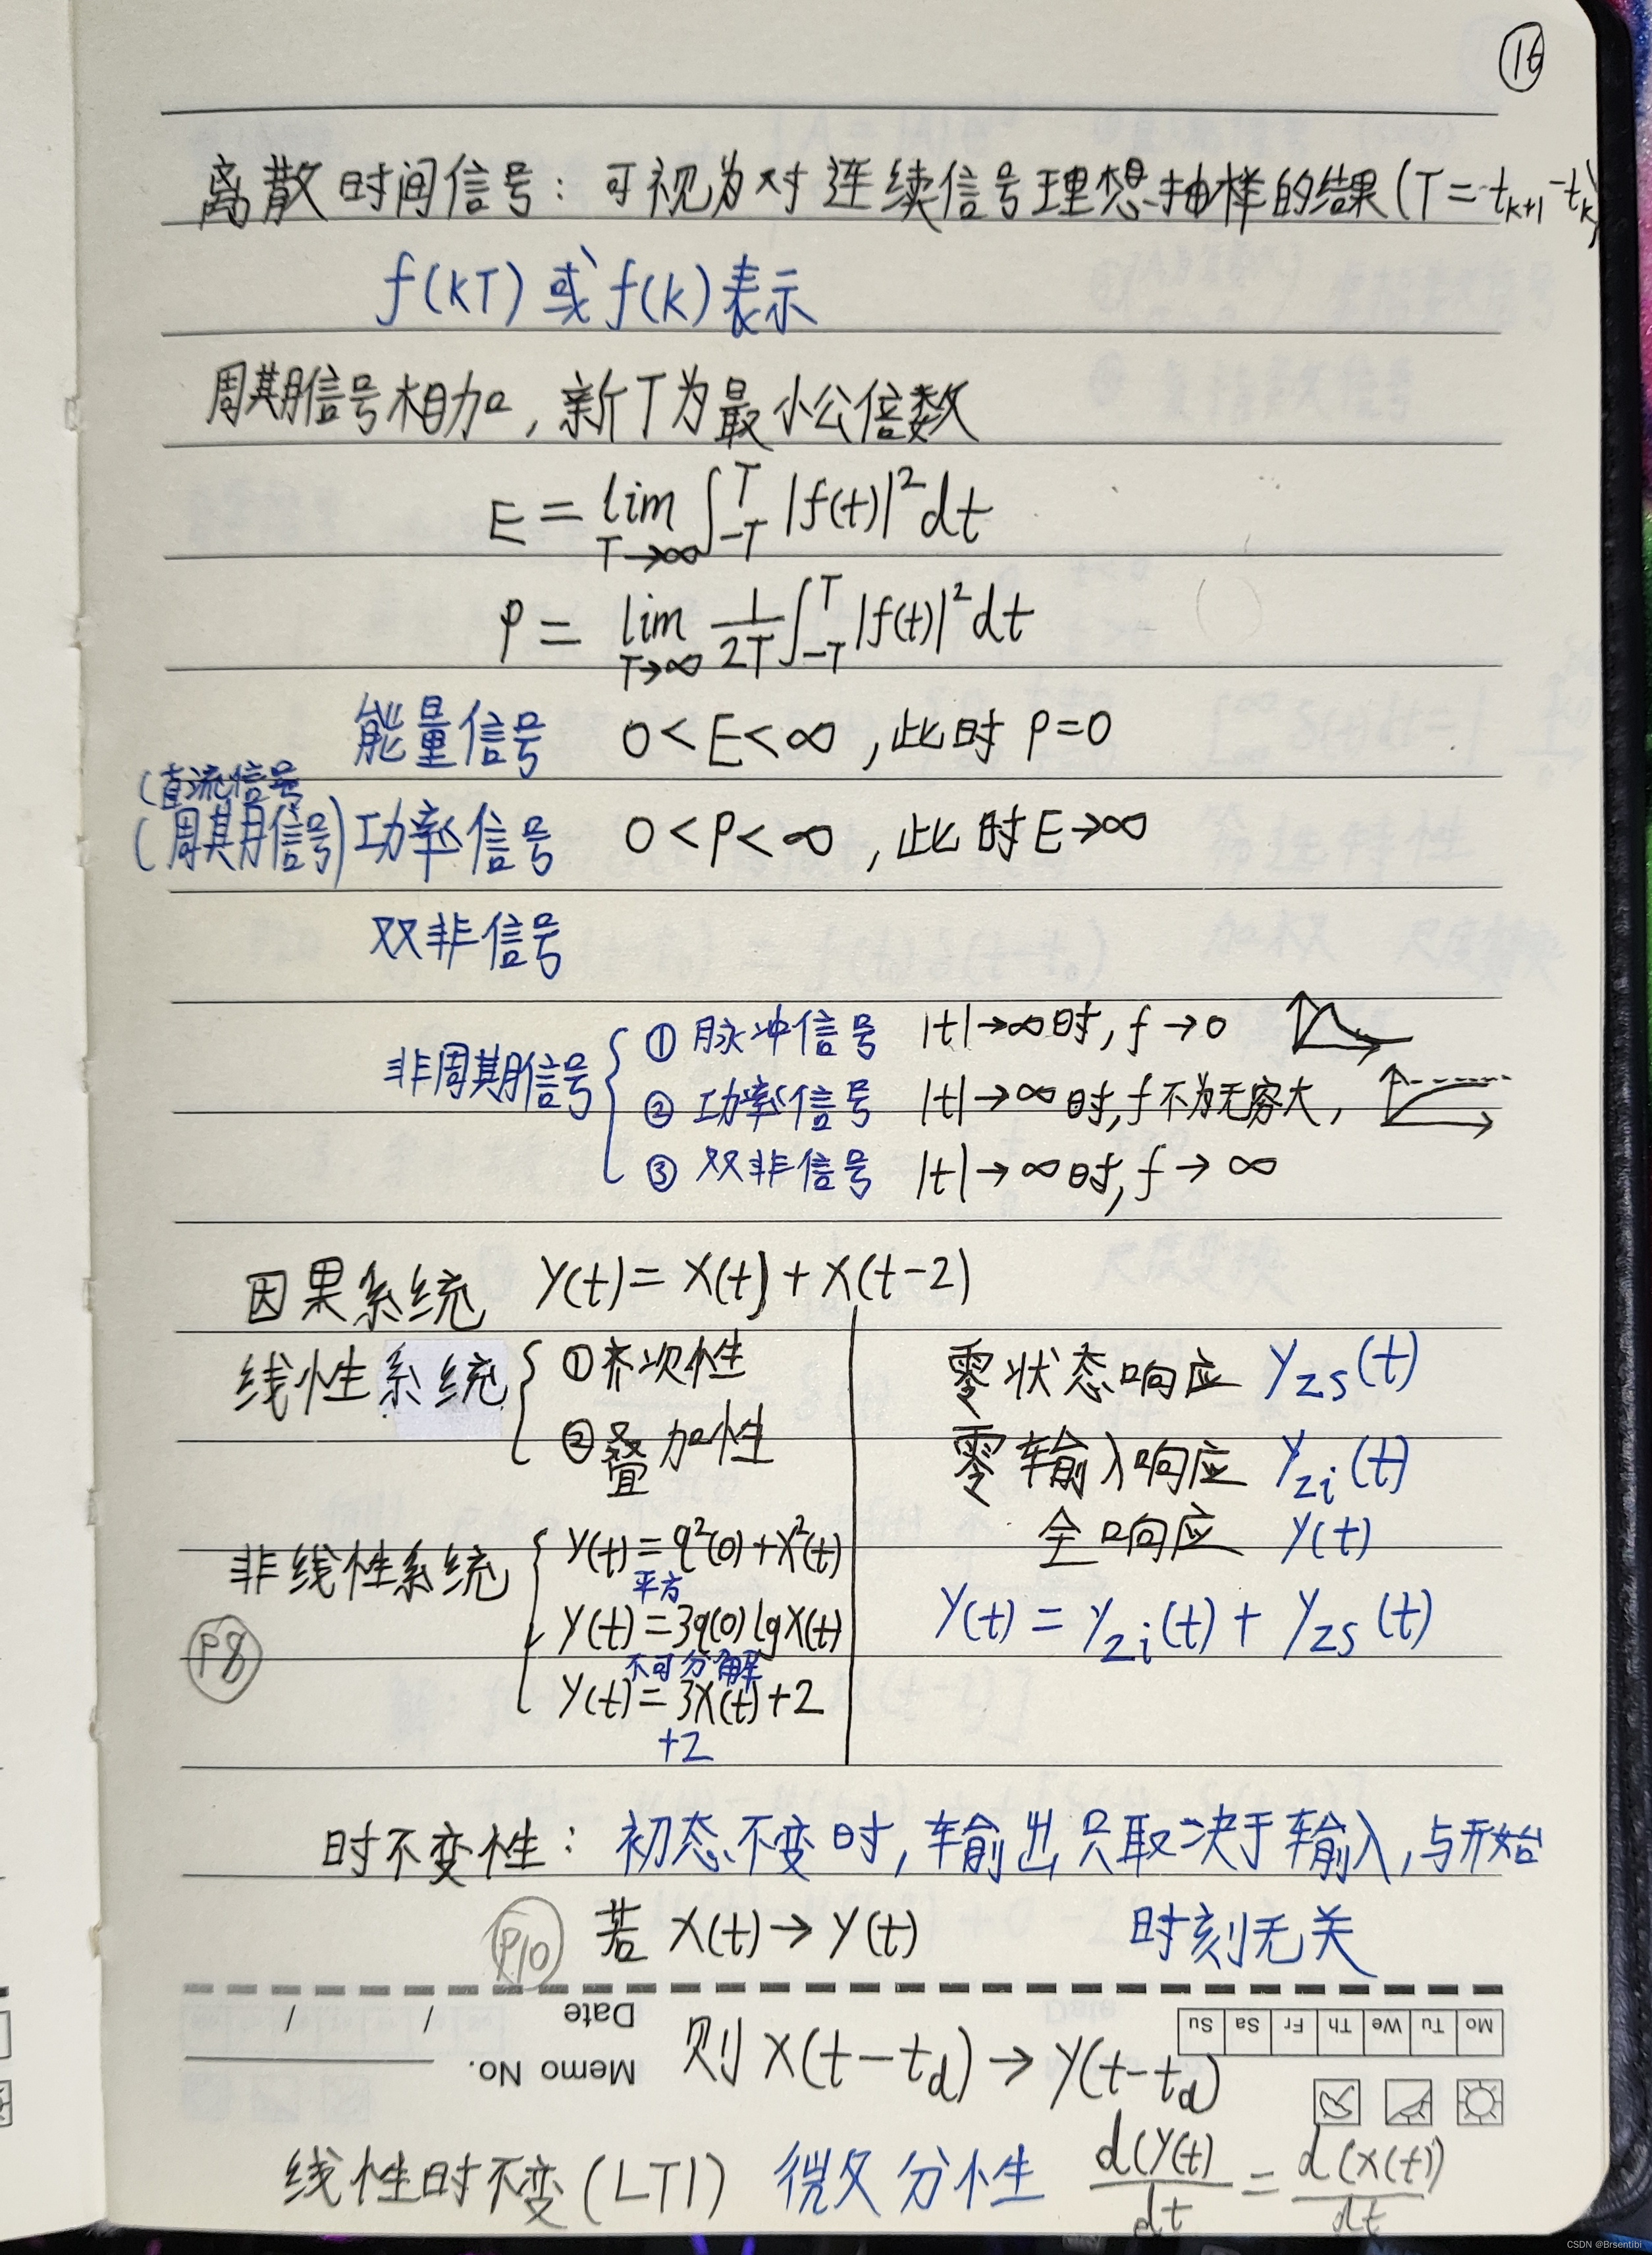 16
离散时间信号：可视为对连续信号理想抽样的结果(T=t_{k+1}-t_k)
f(kT) 或 f(k) 表示
周期信号相加，新T为最小公倍数
E = lim_{T→∞} ∫_{-T}^{T} |f(t)|² dt
P = lim_{T→∞} \frac{1}{2T} ∫_{-T}^{T} |f(t)|² dt
能量信号 0<E<∞，此时 P=0
(直流信号
(周期信号) 功率信号 0<P<∞，此时E→∞
双非信号
非周期信号 { ① 脉冲信号 |t|→∞时, f→0
② 功率信号 |t|→∞时, f不为无穷大,
③ 双非信号 |t|→∞时, f→∞
因果系统 y(t)=x(t)+x(t-2)
线性系统 { ①齐次性
②叠加性
非线性系统 { y(t)=q²(0)+x²(t)
平方
y(t)=3q(0)lgx(t)
不可分解
y(t)=3x(t)+2
+2
P8
零状态响应 y_{zs}(t)
零输入响应 y_{zi}(t)
全响应 y(t)
y(t)=y_{zi}(t)+y_{zs}(t)
时不变性：初态不变时, 输出只取决于输入, 与开始
时刻无关
P10 若 x(t)→y(t)
Date / /
Memo No.
Mo Tu We Th Fr Sa Su
则 x(t-t_d)→y(t-t_d)
线性时不变(LTI) 微分性 \frac{d(y(t)}{dt} = \frac{d(x(t))}{dt}
CSDN @Brsentibi